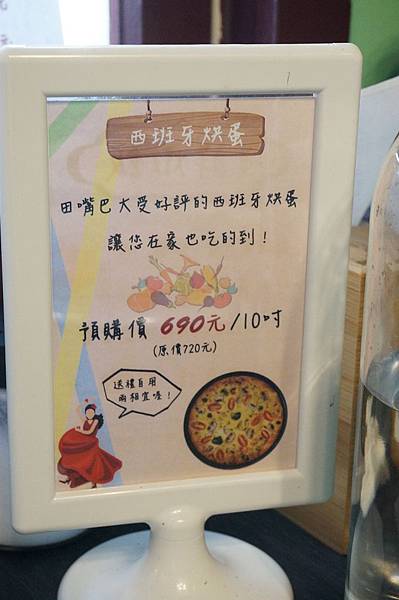 西班牙烘蛋
田嘴巴大受好評的西班牙烘蛋
讓您在家也吃的到！
預購價 690元/10吋
(原價720元)
送禮自用
兩相宜喔！